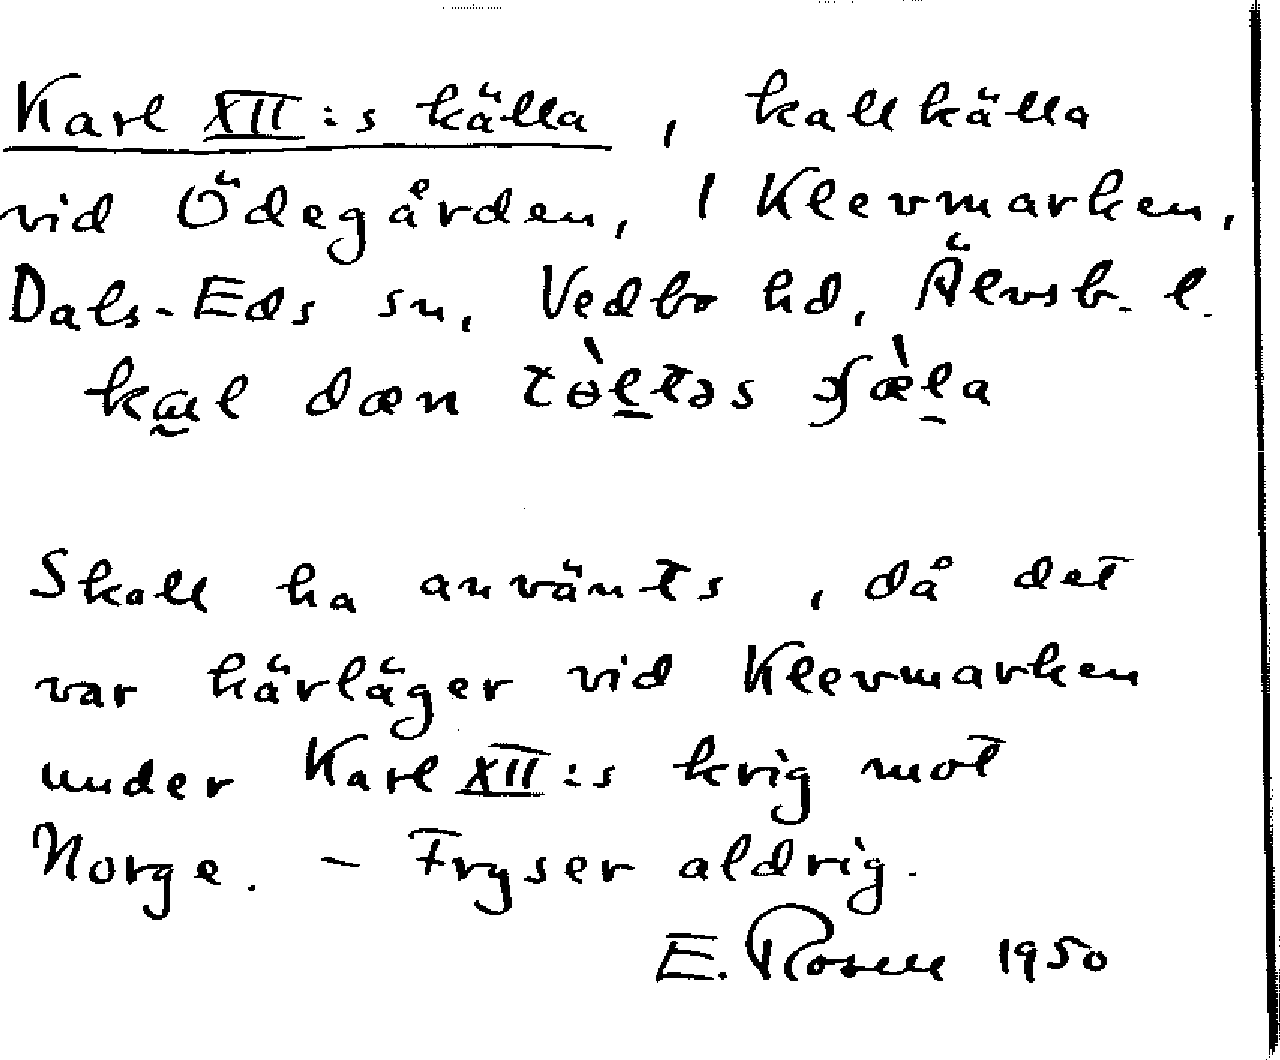 Karl XII:s källa, kallkälla
vid Ödegården, 1 Klevmarken,
Dals-Eds sn, Vedbo hd, Älvsb. l.
dæn
Skall ha använts, då det
var härläger vid Klevmarken
under Karl XII:s krig mot
Norge. – Fryser aldrig.
E. Rosell 1950